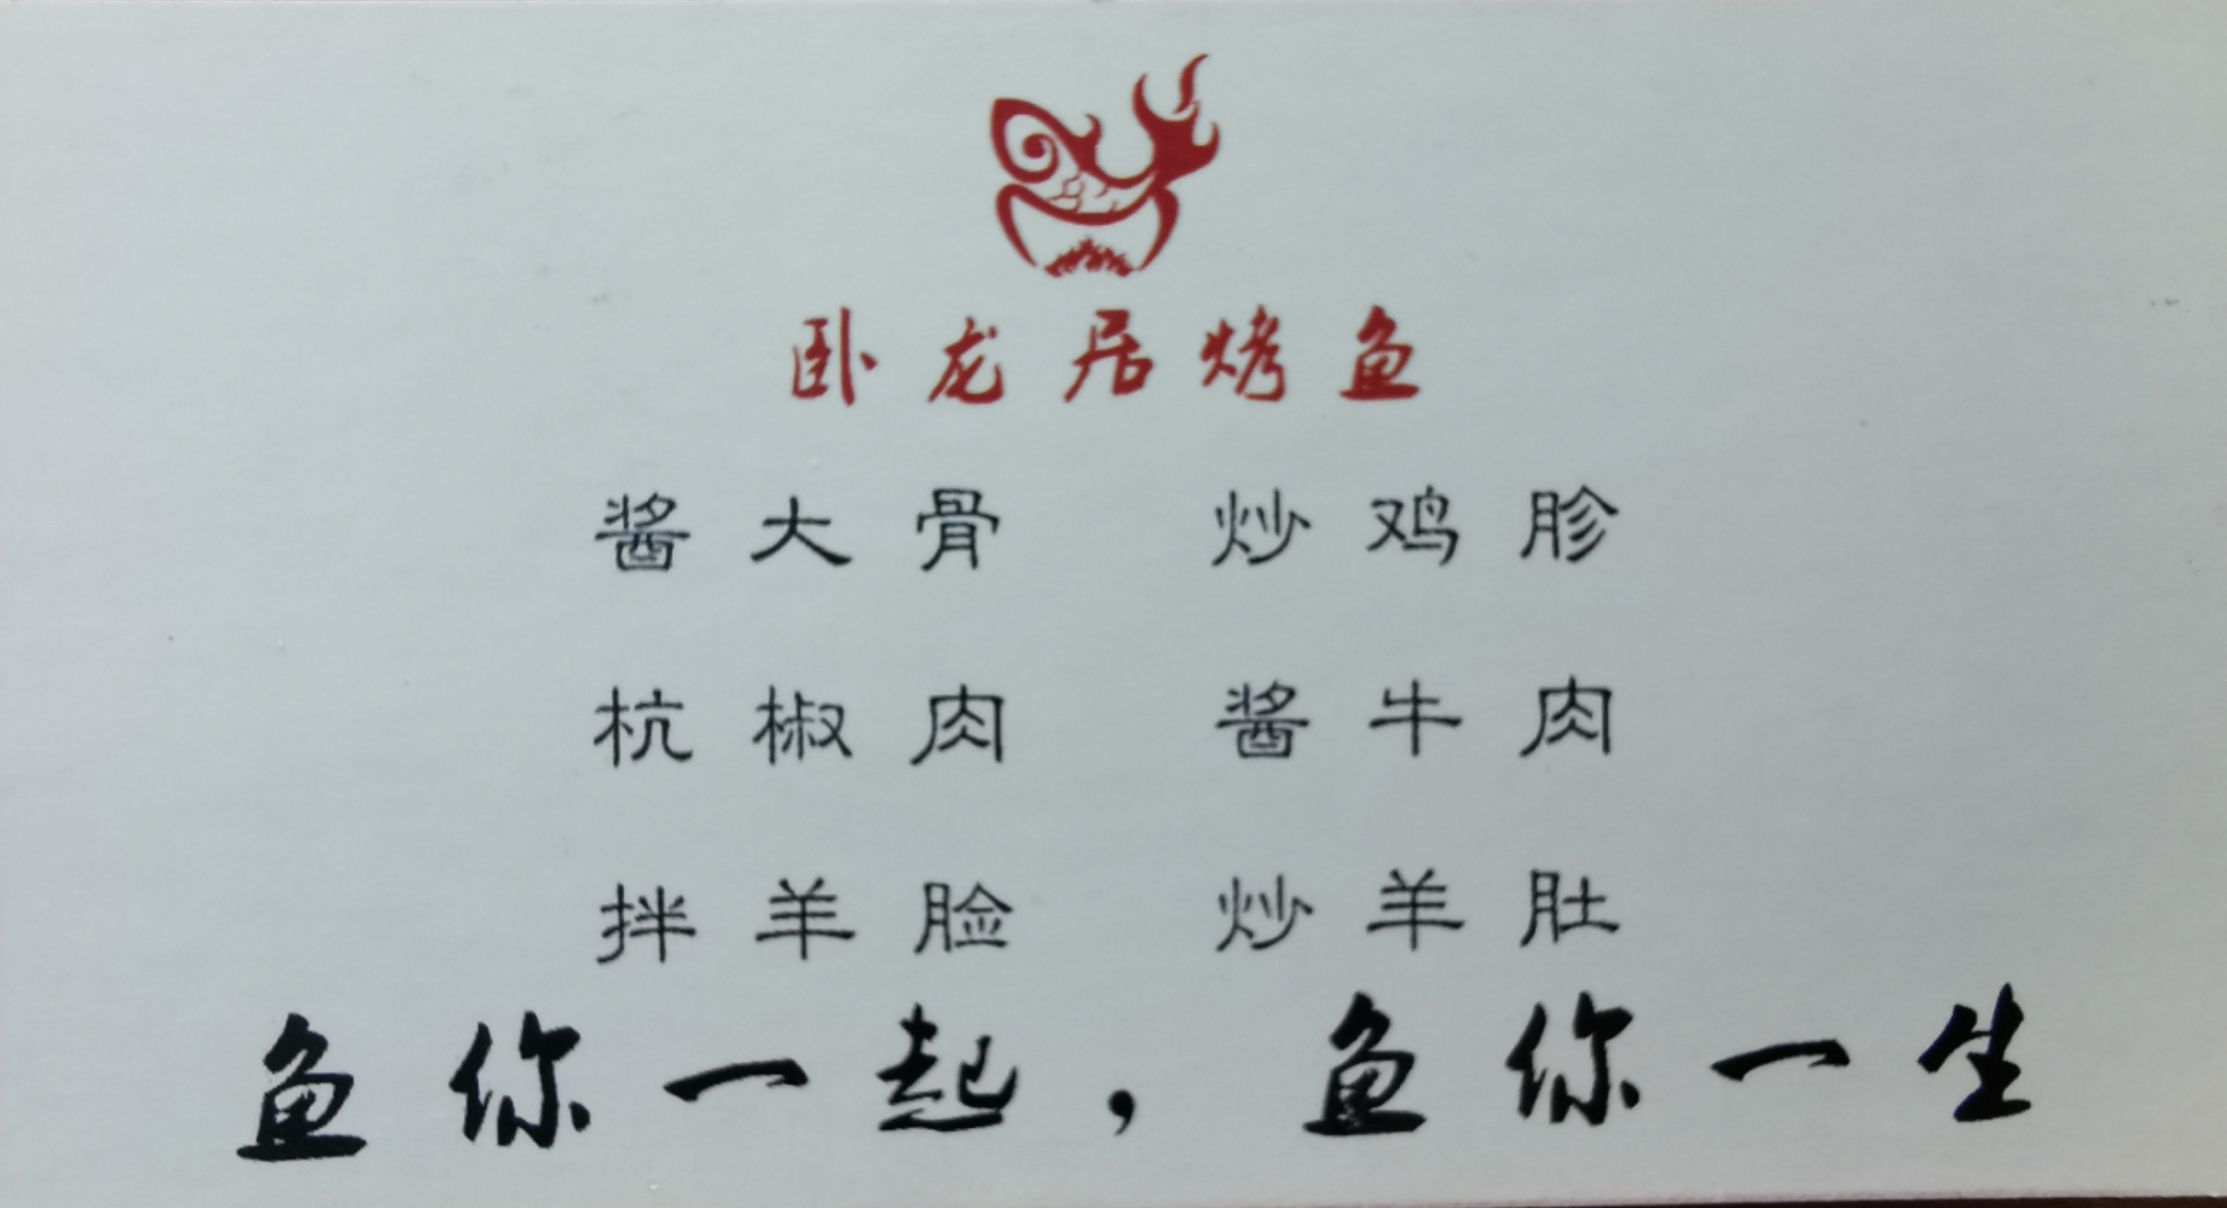 卧龙居烤鱼
酱大骨 炒鸡胗
杭椒肉 酱牛肉
拌羊脸 炒羊肚
鱼你一起，鱼你一生